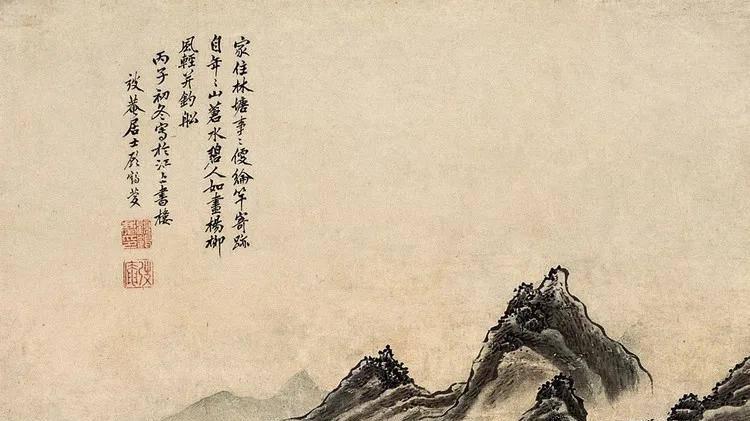 家住林塘事〻便綸竿寄跡
自年〻山蒼水碧人如畫楊柳
風輕弄釣船
丙子初冬寫於江上書樓
弢菴居士顧鶴慶